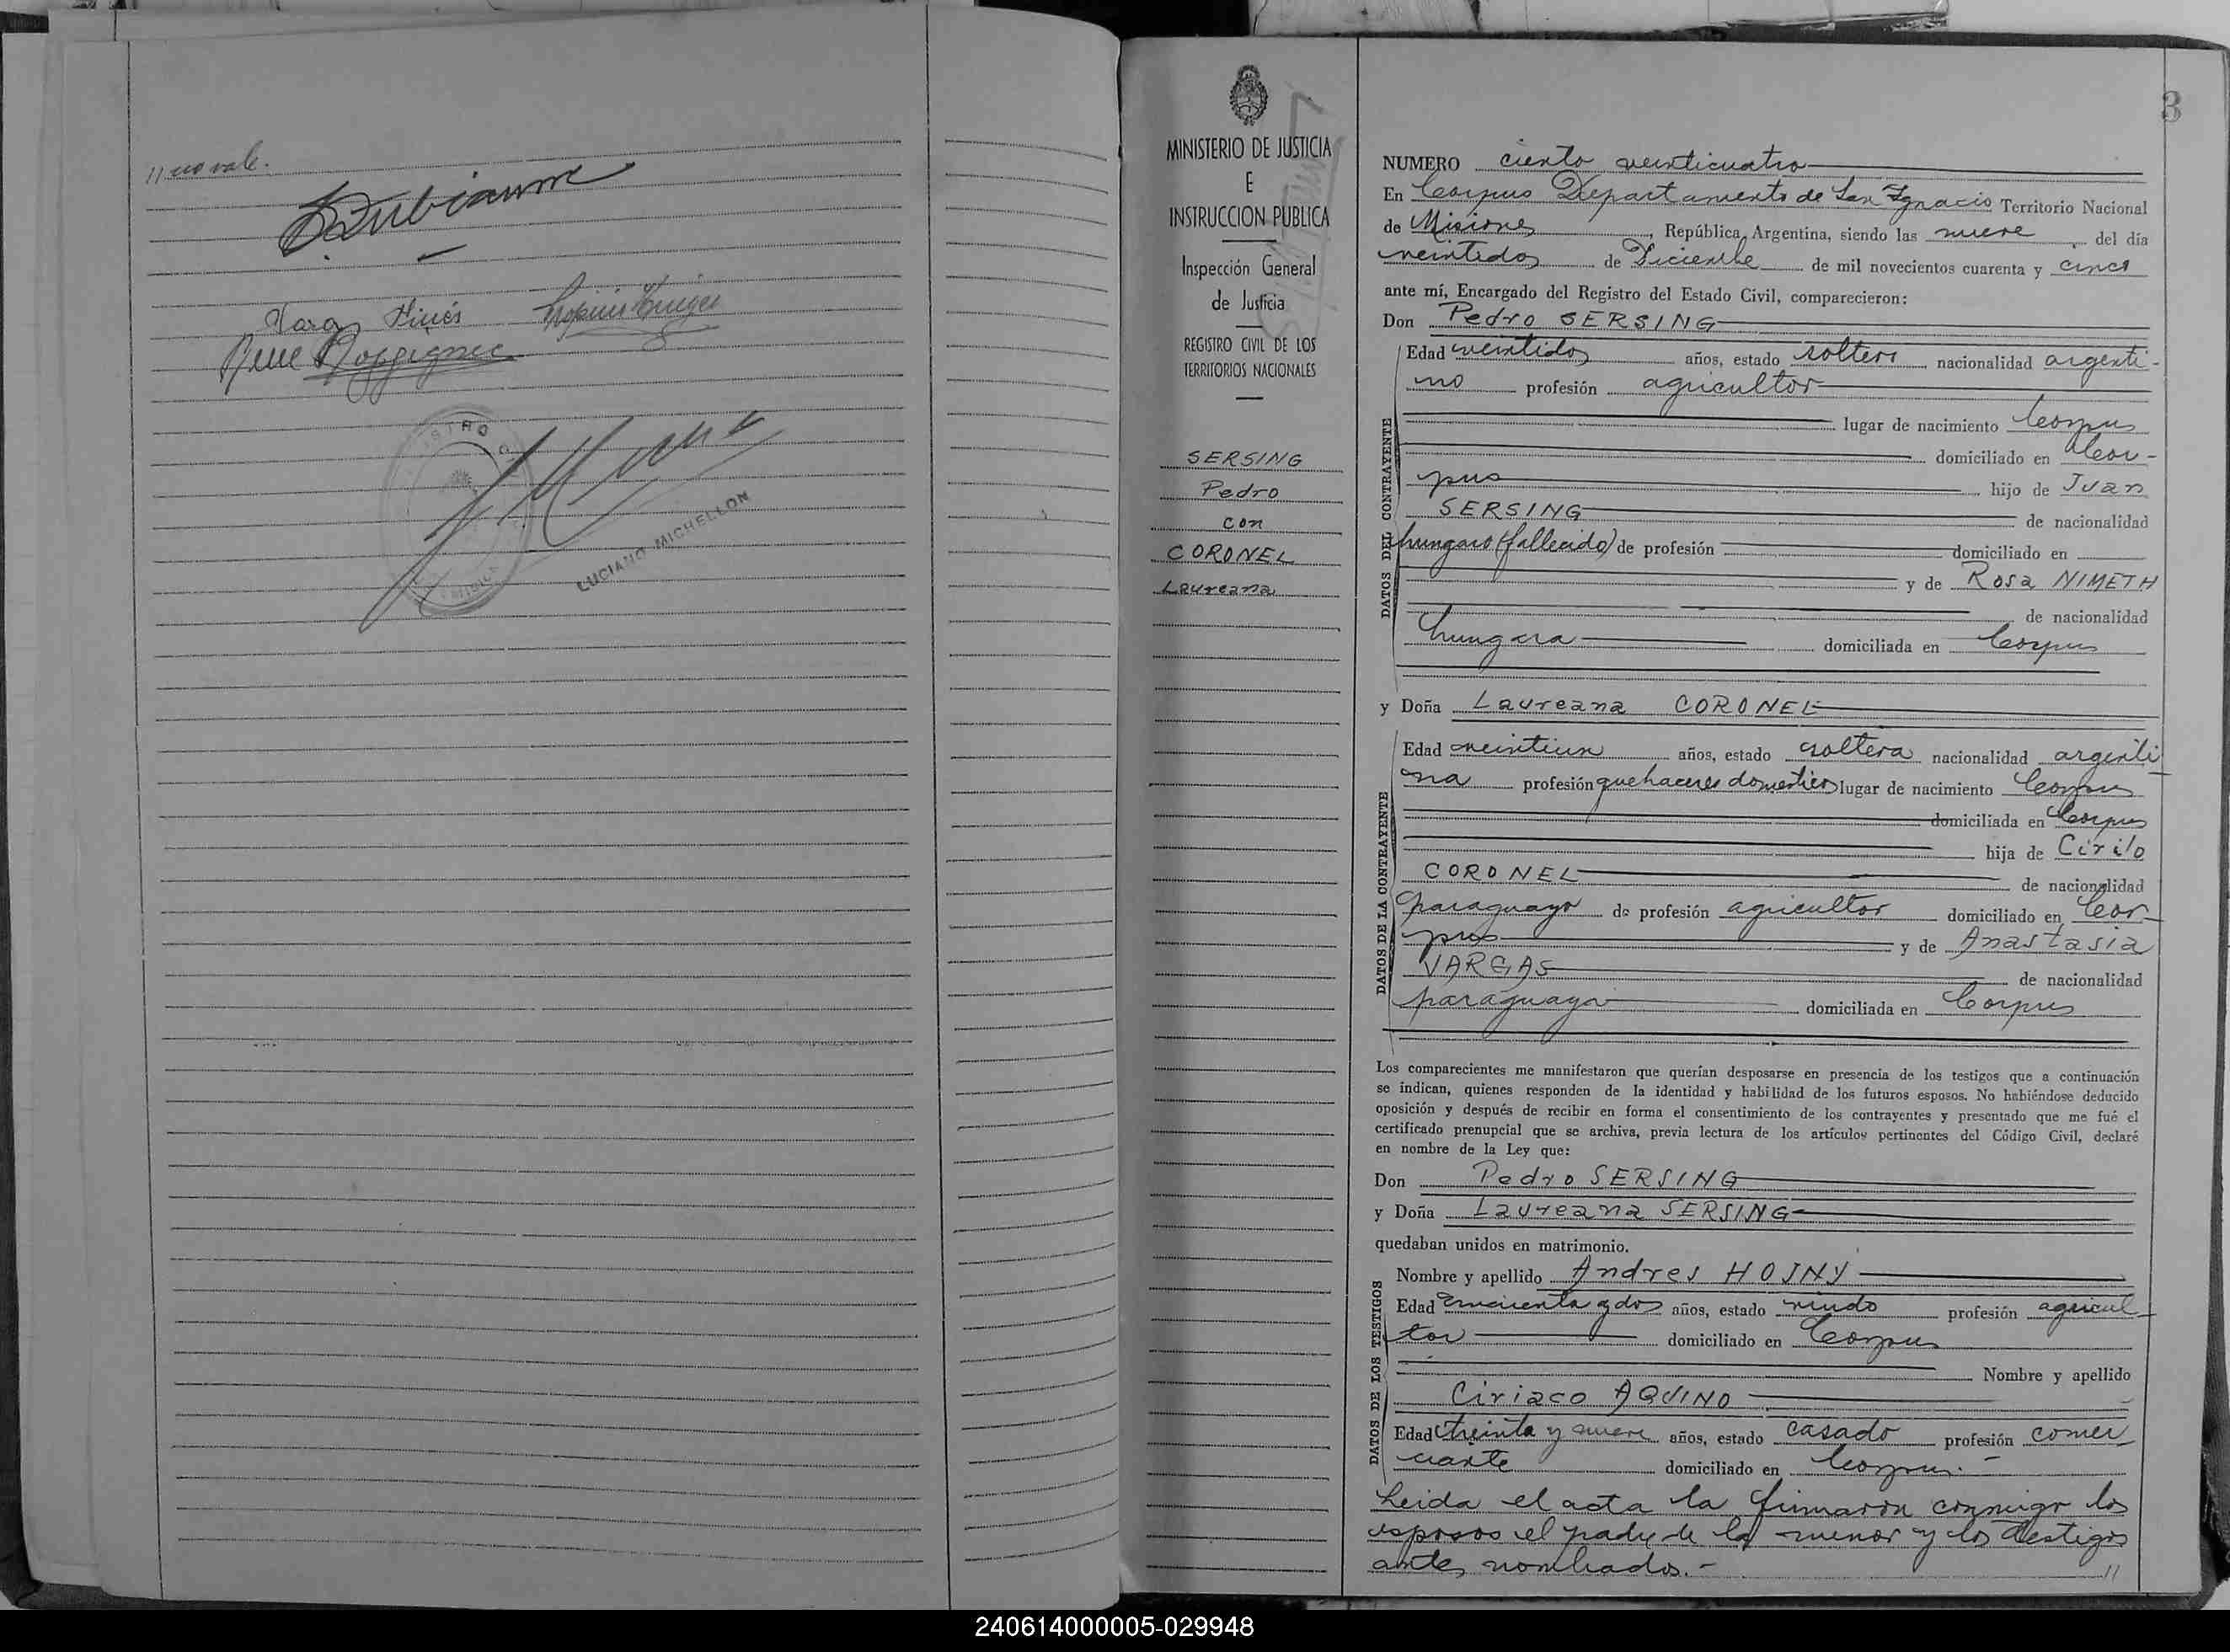 // no vale.
LUCIANO MICHELLON
3
MINISTERIO DE JUSTICIA
E
INSTRUCCION PUBLICA
Inspección General
de Justicia
REGISTRO CIVIL DE LOS
TERRITORIOS NACIONALES
SERSING
Pedro
con
CORONEL
Laureana
NUMERO ciento veinticuatro
En Corpus Departamento de San Ignacio Territorio Nacional
de Misiones, República Argentina, siendo las nueve del día
veintidos de Diciembre de mil novecientos cuarenta y cinco
ante mí, Encargado del Registro del Estado Civil, comparecieron:
Don Pedro SERSING
DATOS DEL CONTRAYENTE
Edad veintidos años, estado soltero nacionalidad argenti-
no profesión agricultor
lugar de nacimiento Corpus
domiciliado en Cor-
pus hijo de Juan
SERSING de nacionalidad
hungaro (fallecido) de profesión domiciliado en
y de Rosa NIMETH
de nacionalidad
hungara domiciliada en Corpus
y Doña Laureana CORONEL
DATOS DE LA CONTRAYENTE
Edad veintiun años, estado soltera nacionalidad argenti-
na profesión quehaceres domesticos lugar de nacimiento Corpus
domiciliada en Corpus
hija de Cirilo
CORONEL de nacionalidad
paraguayo de profesión agricultor domiciliado en Cor-
pus y de Anastasia
VARGAS de nacionalidad
paraguaya domiciliada en Corpus
Los comparecientes me manifestaron que querían desposarse en presencia de los testigos que a continuación
se indican, quienes responden de la identidad y habilidad de los futuros esposos. No habiéndose deducido
oposición y después de recibir en forma el consentimiento de los contrayentes y presentado que me fué el
certificado prenupcial que se archiva, previa lectura de los artículos pertinentes del Código Civil, declaré
en nombre de la Ley que:
Don Pedro SERSING
y Doña Laureana SERSING
quedaban unidos en matrimonio.
DATOS DE LOS TESTIGOS
Nombre y apellido Andres HOJNY
Edad cincuenta y dos años, estado viudo profesión agricul-
tor domiciliado en Corpus
Nombre y apellido
Ciriaco AQUINO
Edad treinta y nueve años, estado casado profesión comer-
ciante domiciliado en Corpus.-
Leida el acta la firmaron conmigo los
esposos el padre de la menor y los testigos
antes nombrados.- //
240614000005-029948